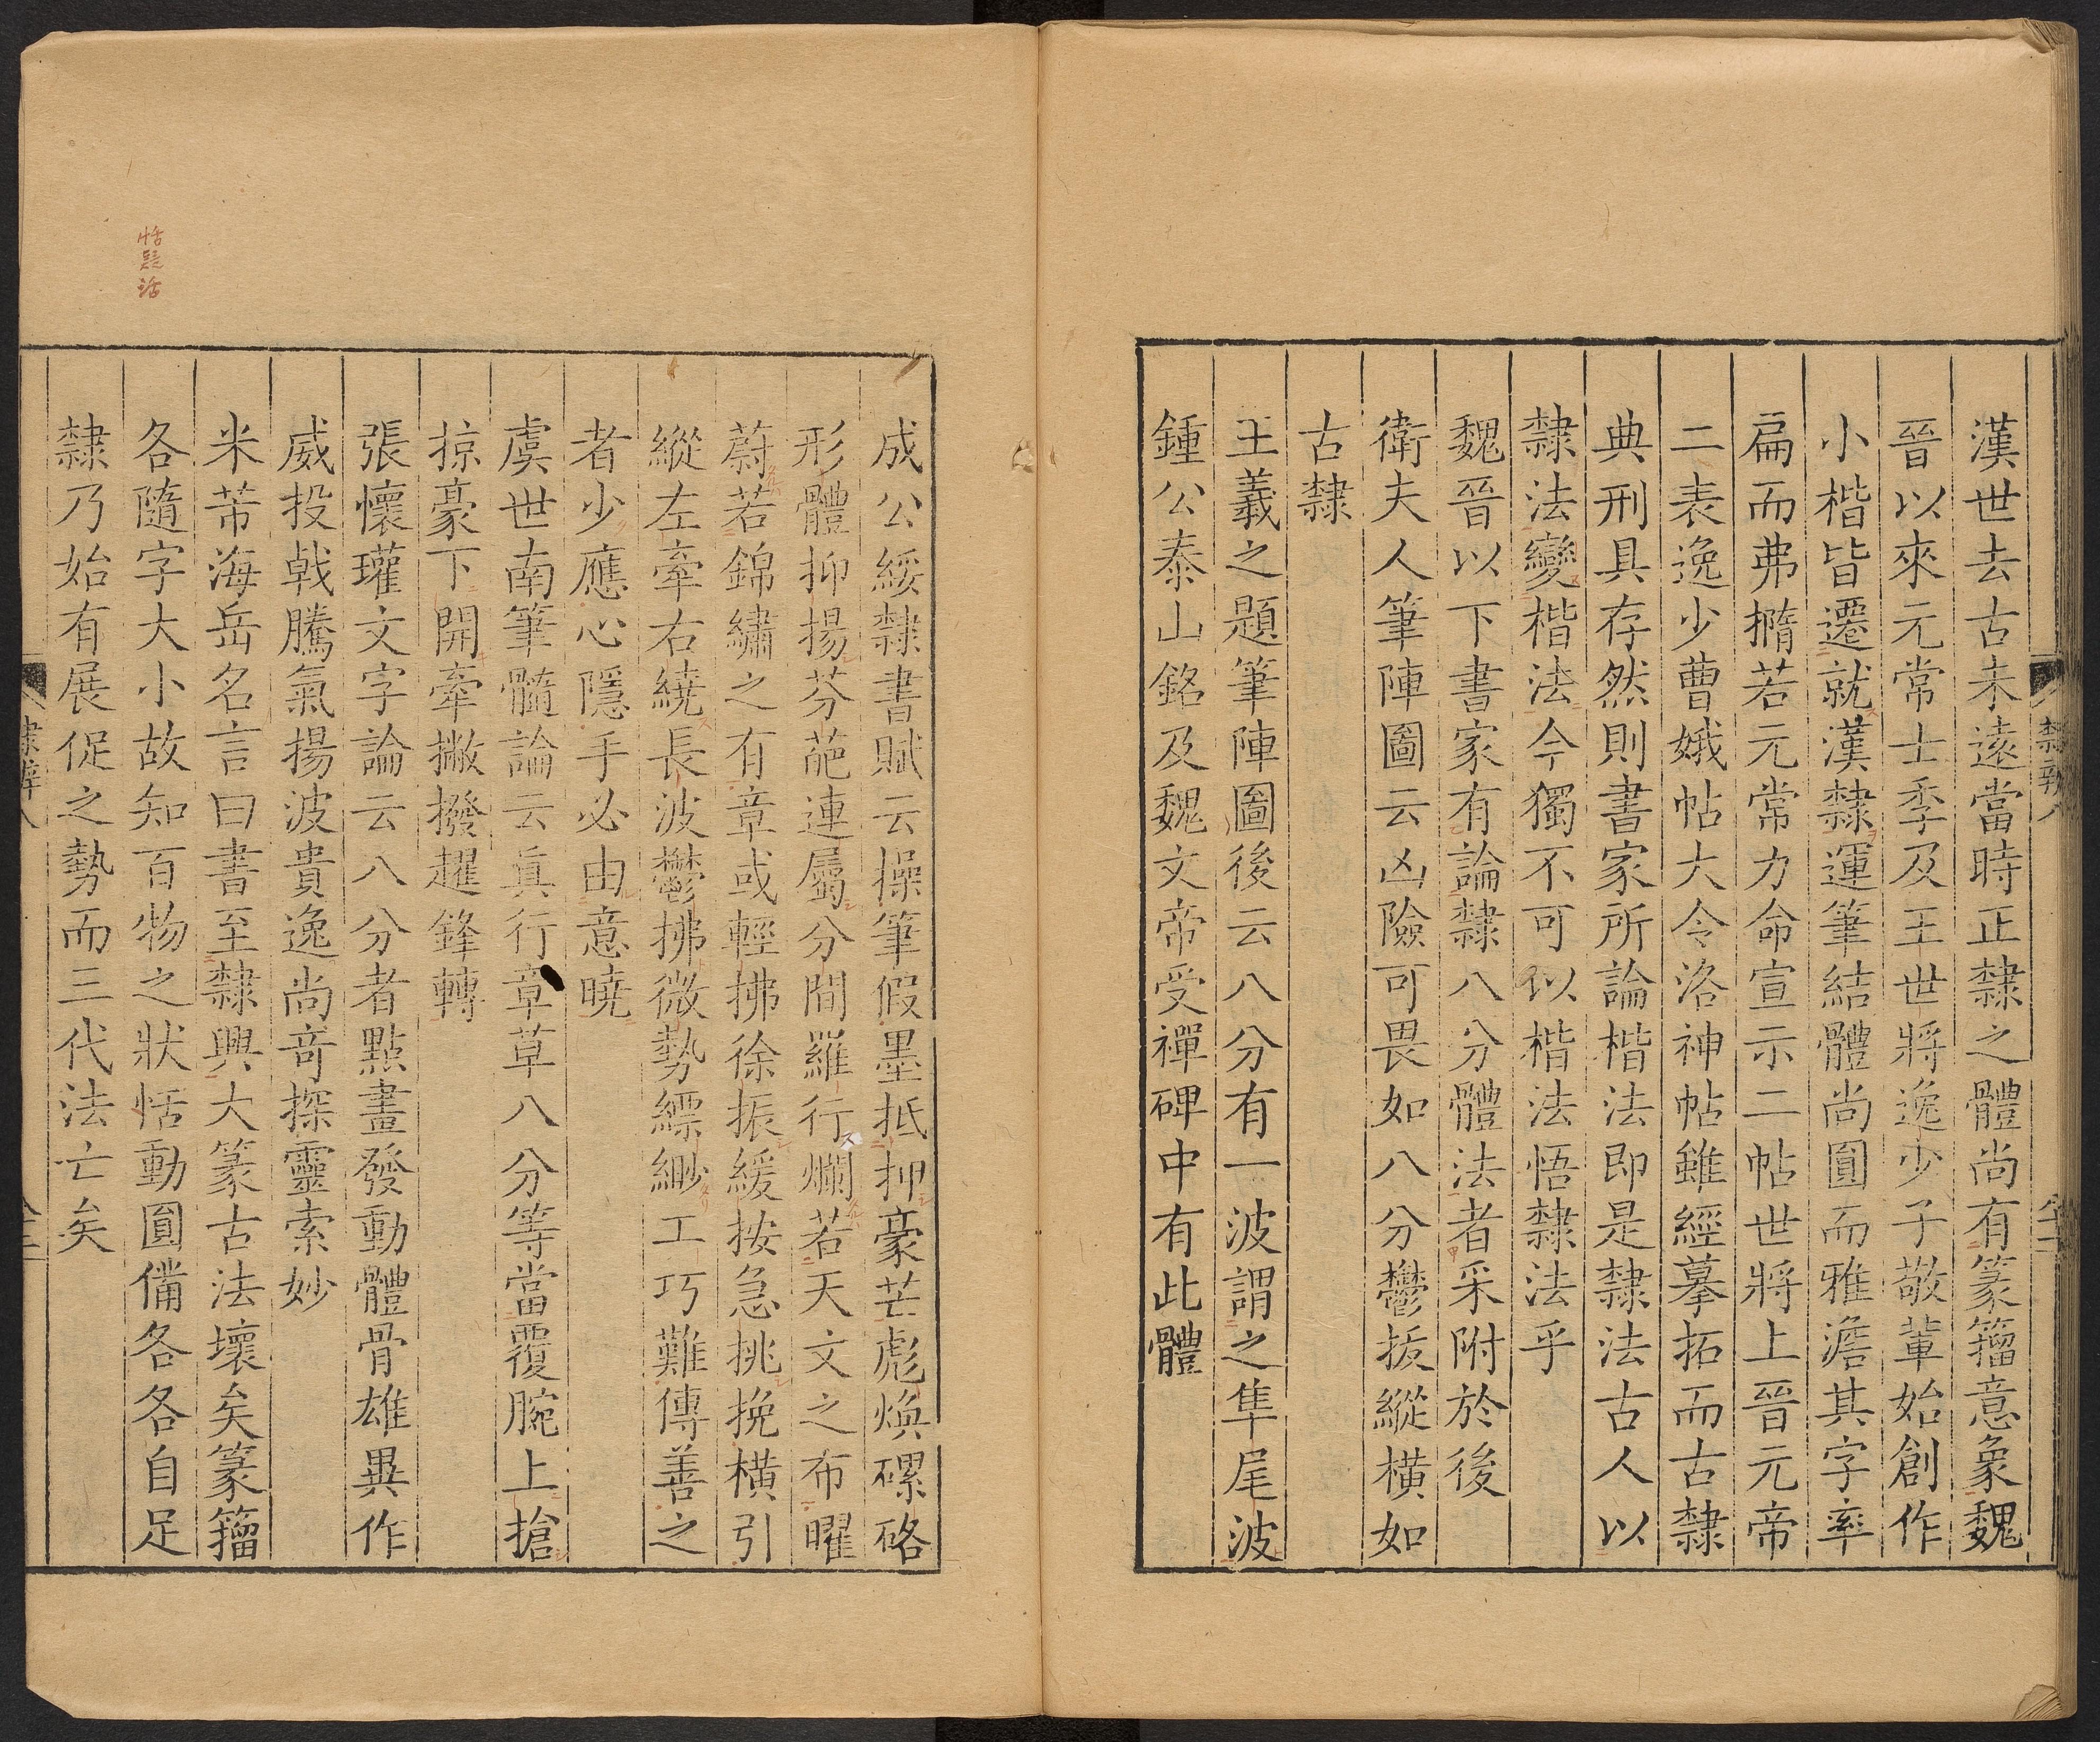 漢世去古未遠當時正隸之體尚有篆籀意象魏
晉以來元常士季及王世將逸少子敬輩始創作
小楷皆遷就漢隸運筆結體尚圓而雅澹其字率
扁而弗撱若元常力命宣示二帖世將上晉元帝
二表逸少曹娥帖大令洛神帖雖經摹拓而古隸
典刑具存然則書家所論楷法即是隸法古人以
隸法變楷法今獨不可以楷法悟隸法乎
魏晉以下書家有論隸八分體法者采附於後
衛夫人筆陣圖云凶險可畏如八分鬱拔縱橫如
古隸
王羲之題筆陣圖後云八分有一波謂之隼尾波
鍾公泰山銘及魏文帝受禪碑中有此體
成公綏隸書賦云操筆假墨抵押豪芒彪煥磥硌
形體抑揚芬葩連屬分間羅行爛若天文之布曜
蔚若錦繡之有章或輕拂徐振緩按急挑挽橫引
縱左牽右繞長波鬱拂微勢縹緲工巧難傳善之
者少應心隱手必由意曉
虞世南筆髓論云真行章草八分等當覆腕上搶
掠豪下開牽撇撥趯鋒轉
張懷瓘文字論云八分者點畫發動體骨雄異作
威投戟騰氣揚波貴逸尚奇探靈索妙
米芾海岳名言曰書至隸興大篆古法壞矣篆籀
各隨字大小故知百物之狀恬動圓備各各自足
隸乃始有展促之勢而三代法亡矣
恬疑活
隸辨八
隸辨八